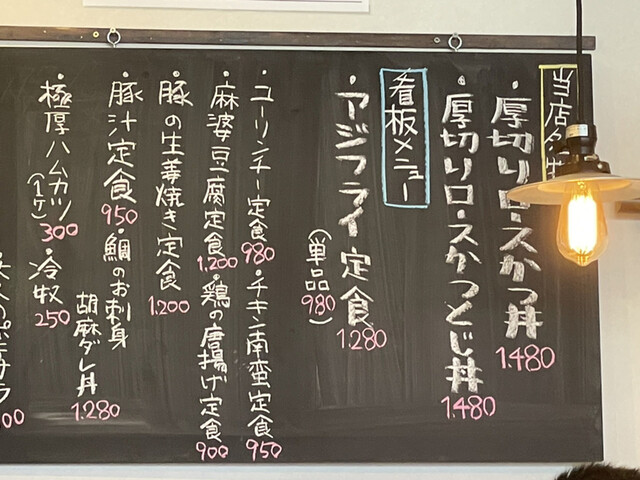 当店名物
・厚切りロースかつ丼
1.480
厚切りロースかつとじ丼
1.480
看板メニュー
・アジフライ定食
1.280
(単品980)
・ユーリンチー定食
980
・チキン南蛮定食
950
・麻婆豆腐定食
1.200
・鶏の唐揚げ定食
900
・豚の生姜焼き定食
1.200
・豚汁定食
950
・鯛のお刺身
胡麻ダレ丼
1.280
・極厚ハムカツ
(1ケ)
300
・冷奴
250